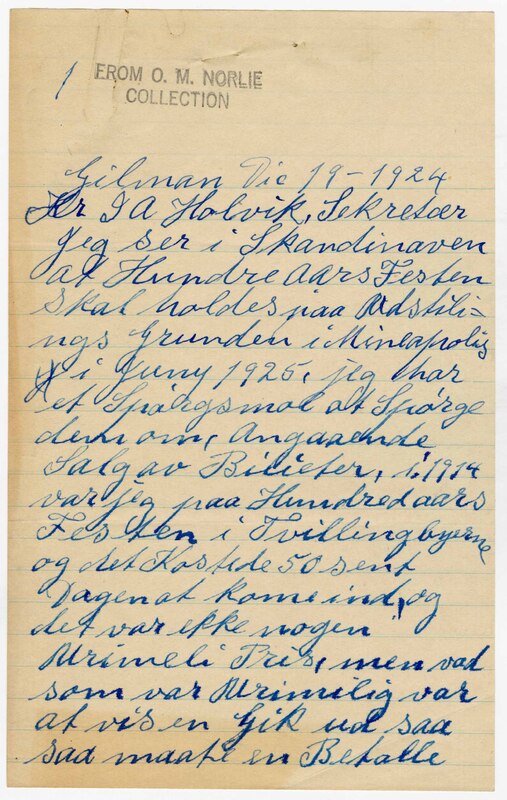 1
FROM O. M. NORLIE
COLLECTION
Gilman Dic 19-1924
Hr I A Holvik, Sekretær
Jeg ser i Skandinaven
at Hundre Aars Festen
skal holdes paa Udstili-
ngs Grunden i Mineapolis
i Juny 1925, jeg har
et Spørgsmol at Spørge
dem om, Angaaende
Salg av Bilieter, i 1914
var jeg paa Hundredaars
Festen i Tvillingbyerne
og det Kostede 50 sent
Dagen at kome ind, og
det var ekke nogen
Urimeli Pris, men vad
som var Urimilig var
at vis en Gik ud saa
saa maate en Betalle